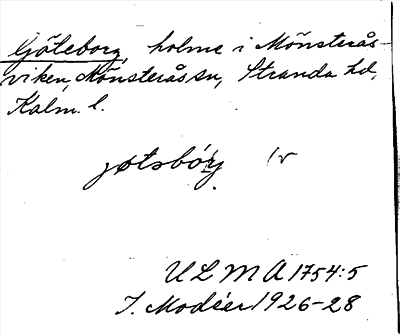 Göteborg, holme i Mönsterås-
viken, Mönsterås sn, Stranda hd,
Kalm. l.
jøtsbórj
ULMA 1754:5
I. Modéer 1926-28